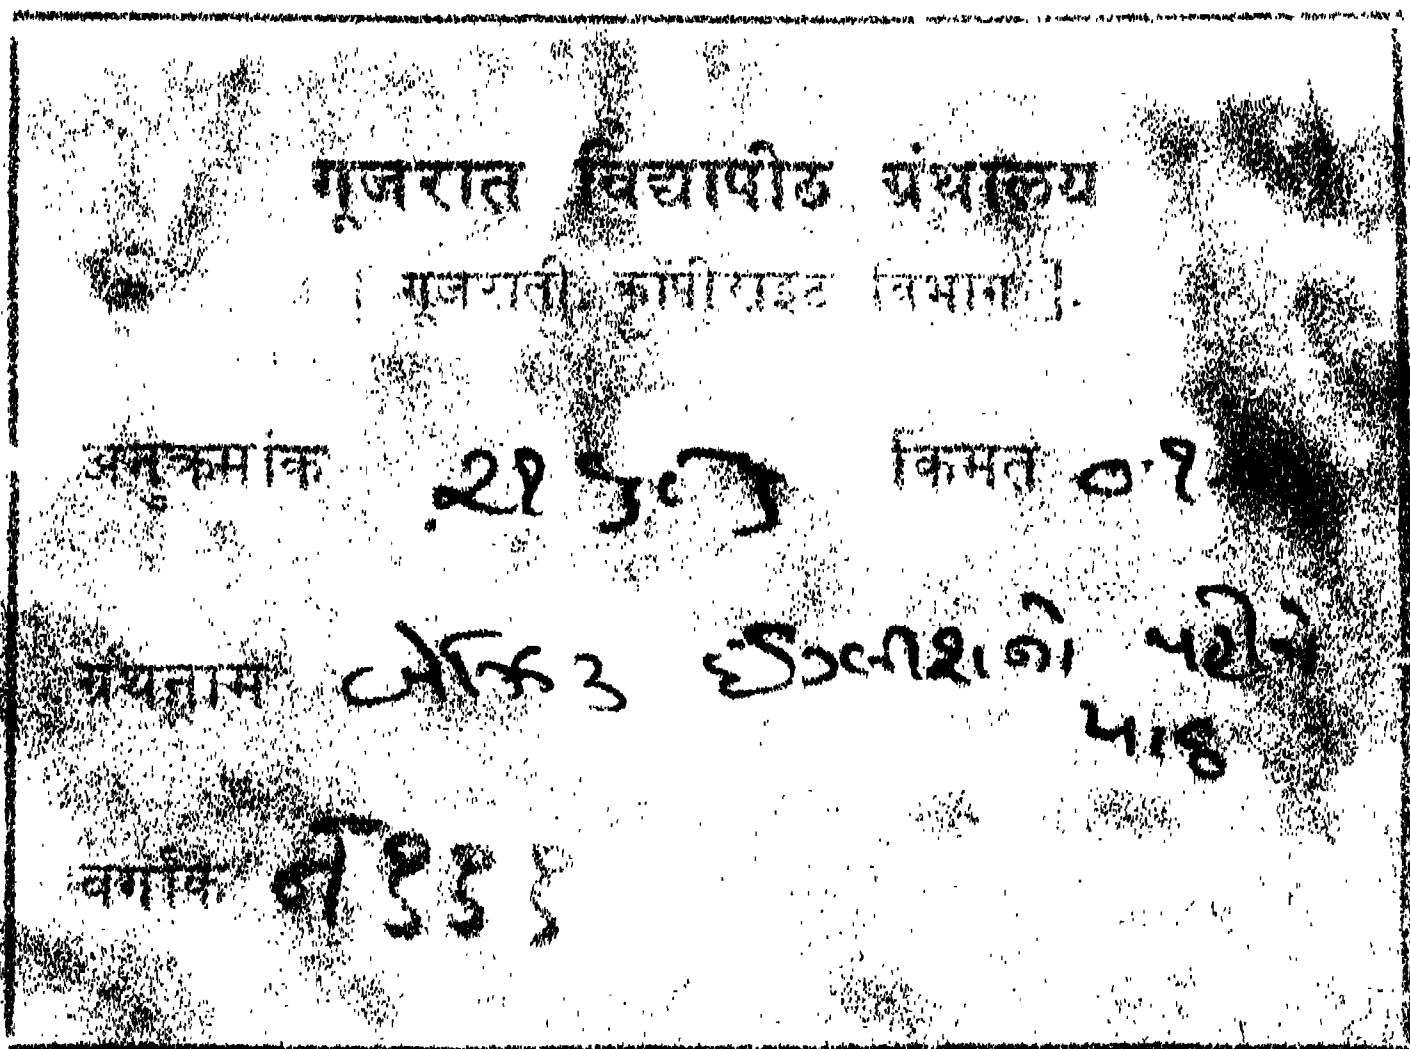 गूजरात विद्यापीठ ग्रंथालय
[ गूजराती कॉपीराइट विभाग ]
अनुक्रमांक ૨૧ किंमत ૦-૧
ग्रंथनाम બેઝિક ઈંગ્લીશનો પહેલો
પાઠ
वर्गांक